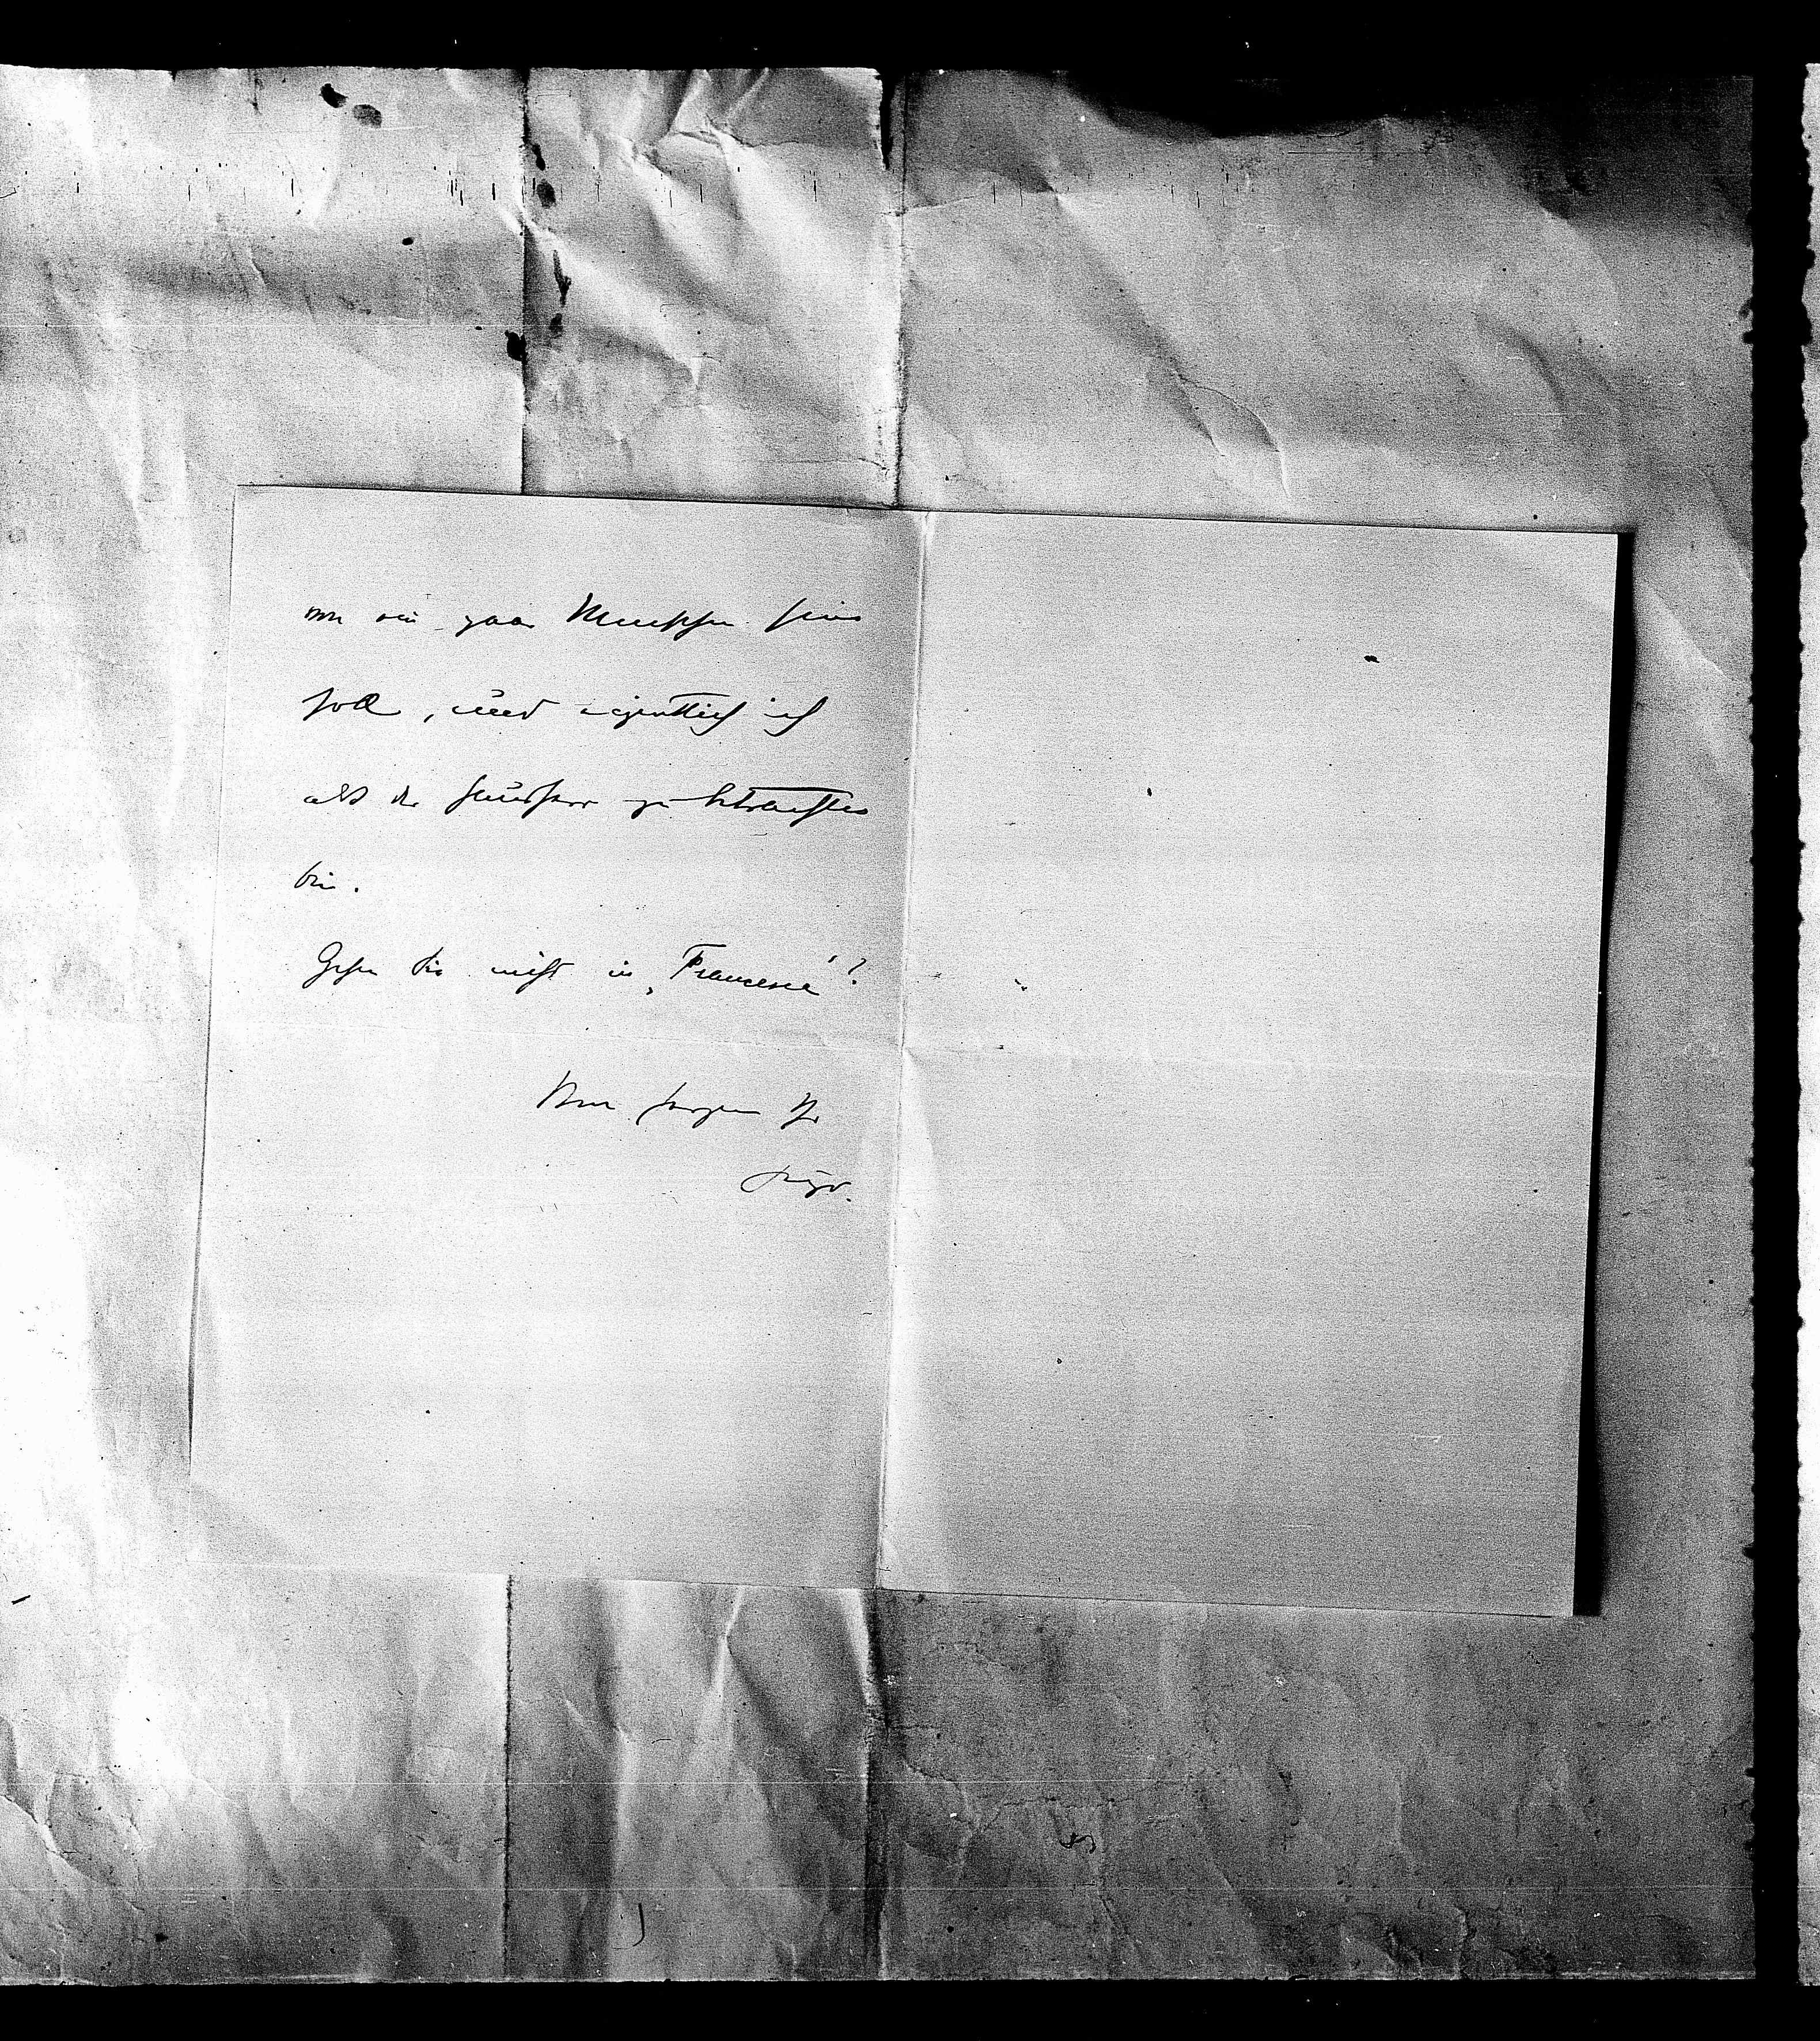 nur ein paar Menschen sein
soll, und eigentlich ich
als der Hausherr zu betrachten
bin.
Gehen Sie nicht in „Francesca“?
Von Herzen Ihr
Hugo.